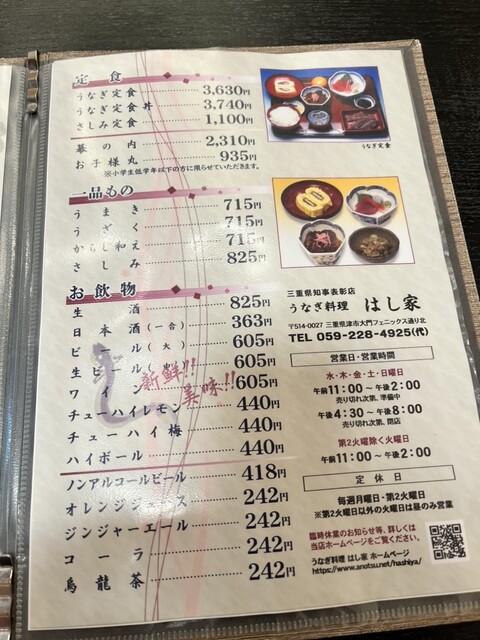 定食
うなぎ定食 3,630円
うなぎ定食丼 3,740円
さしみ定食 1,100円
幕の内 2,310円
お子様丸 935円
※小学生低学年以下の方に限らせていただきます。
うなぎ定食
一品もの
うまき 715円
うざく 715円
からし和え 715円
さしみ 825円
お飲物
生酒 825円
日本酒(一合) 363円
ビール(大) 605円
生ビール 605円
ワイン 605円
新鮮!!
美味!!
チューハイレモン 440円
チューハイ梅 440円
ハイボール 440円
ノンアルコールビール 418円
オレンジジュース 242円
ジンジャーエール 242円
コーラ 242円
烏龍茶 242円
三重県知事表彰店
うなぎ料理 はし家
〒514-0027 三重県津市大門フェニックス通り北
TEL 059-228-4925(代)
営業日・営業時間
水・木・金・土・日曜日
午前11:00〜午後2:00
売り切れ次第、準備中
午後4:30〜午後8:00
売り切れ次第、閉店
第2火曜除く火曜日
午前11:00〜午後2:00
定休日
毎週月曜日・第2火曜日
※第2火曜日以外の火曜日は昼のみ営業
臨時休業のお知らせ等、詳しくは
当店ホームページをご覧ください。
うなぎ料理 はし家 ホームページ
https://www.anotsu.net/hashiya/